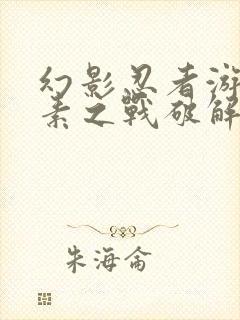 幻影忍者游
素之战破解
朱海仑